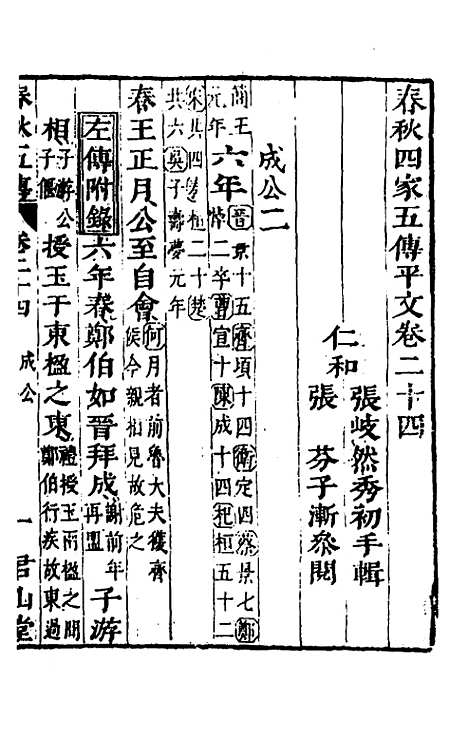 春秋四家五傳平文卷二十四
仁和
張岐然秀初手輯
張　芬子漸叅閱
成公二
簡王元年
六年
晉景十五齊頃十四衛定四蔡景七鄭
悼二卒曹宣十陳成十四𣏌桓五十二
宋共四秦桓二十楚
共六吳子壽夢元年
春王正月公至自會
何月者前魯大夫獲齊
侯今親相見故危之
左傳附錄六年春鄭伯如晉拜成
謝前年
再盟
子游
相
子游公
子偃
授玉于東楹之東
禮授玉兩楹之間
鄭伯行疾故東過
春秋五傳
卷二十四
成公
一
君山堂